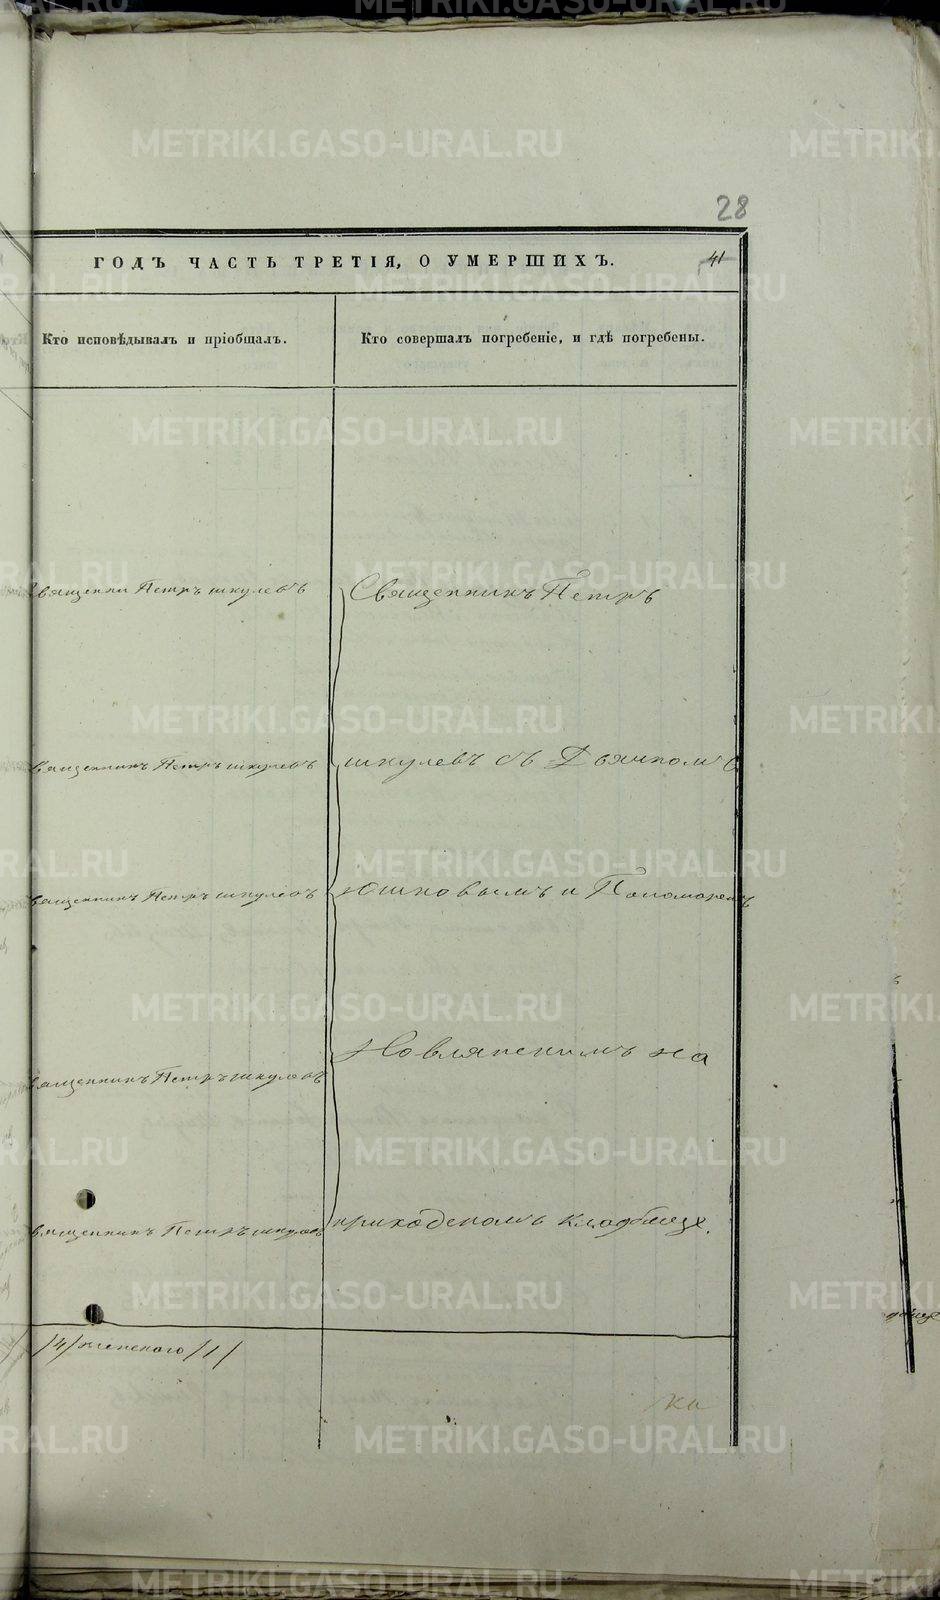 28
ГОДЪ ЧАСТЬ ТРЕТІЯ, О УМЕРШИХЪ.
41
Кто исповѣдывалъ и пріобщалъ.
Кто совершалъ погребеніе, и гдѣ погребены.
Священни Петръ шкулевъ
Священникъ Петръ
Священникъ Петръ шкулевъ
шкулевъ съ Дьячкомъ
Священникъ Петръ шкулевъ
Юшковымъ и Пономаремъ
Священникъ Петръ шкулевъ
на
Священникъ Петръ шкулевъ
приходскомъ кладбище.
/4/ женского /1/
METRIKI.GASO-URAL.RU